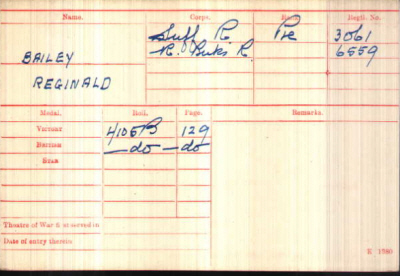 Name. Corps. Rank. Regtl. No.
Suff R Pte 3061
BAILEY R. Berks R. 6559
REGINALD
Medal. Roll. Page. Remarks.
Victory 4/105B 129
British —do —do
Star
Theatre of War first served in
Date of entry therein
K 1380